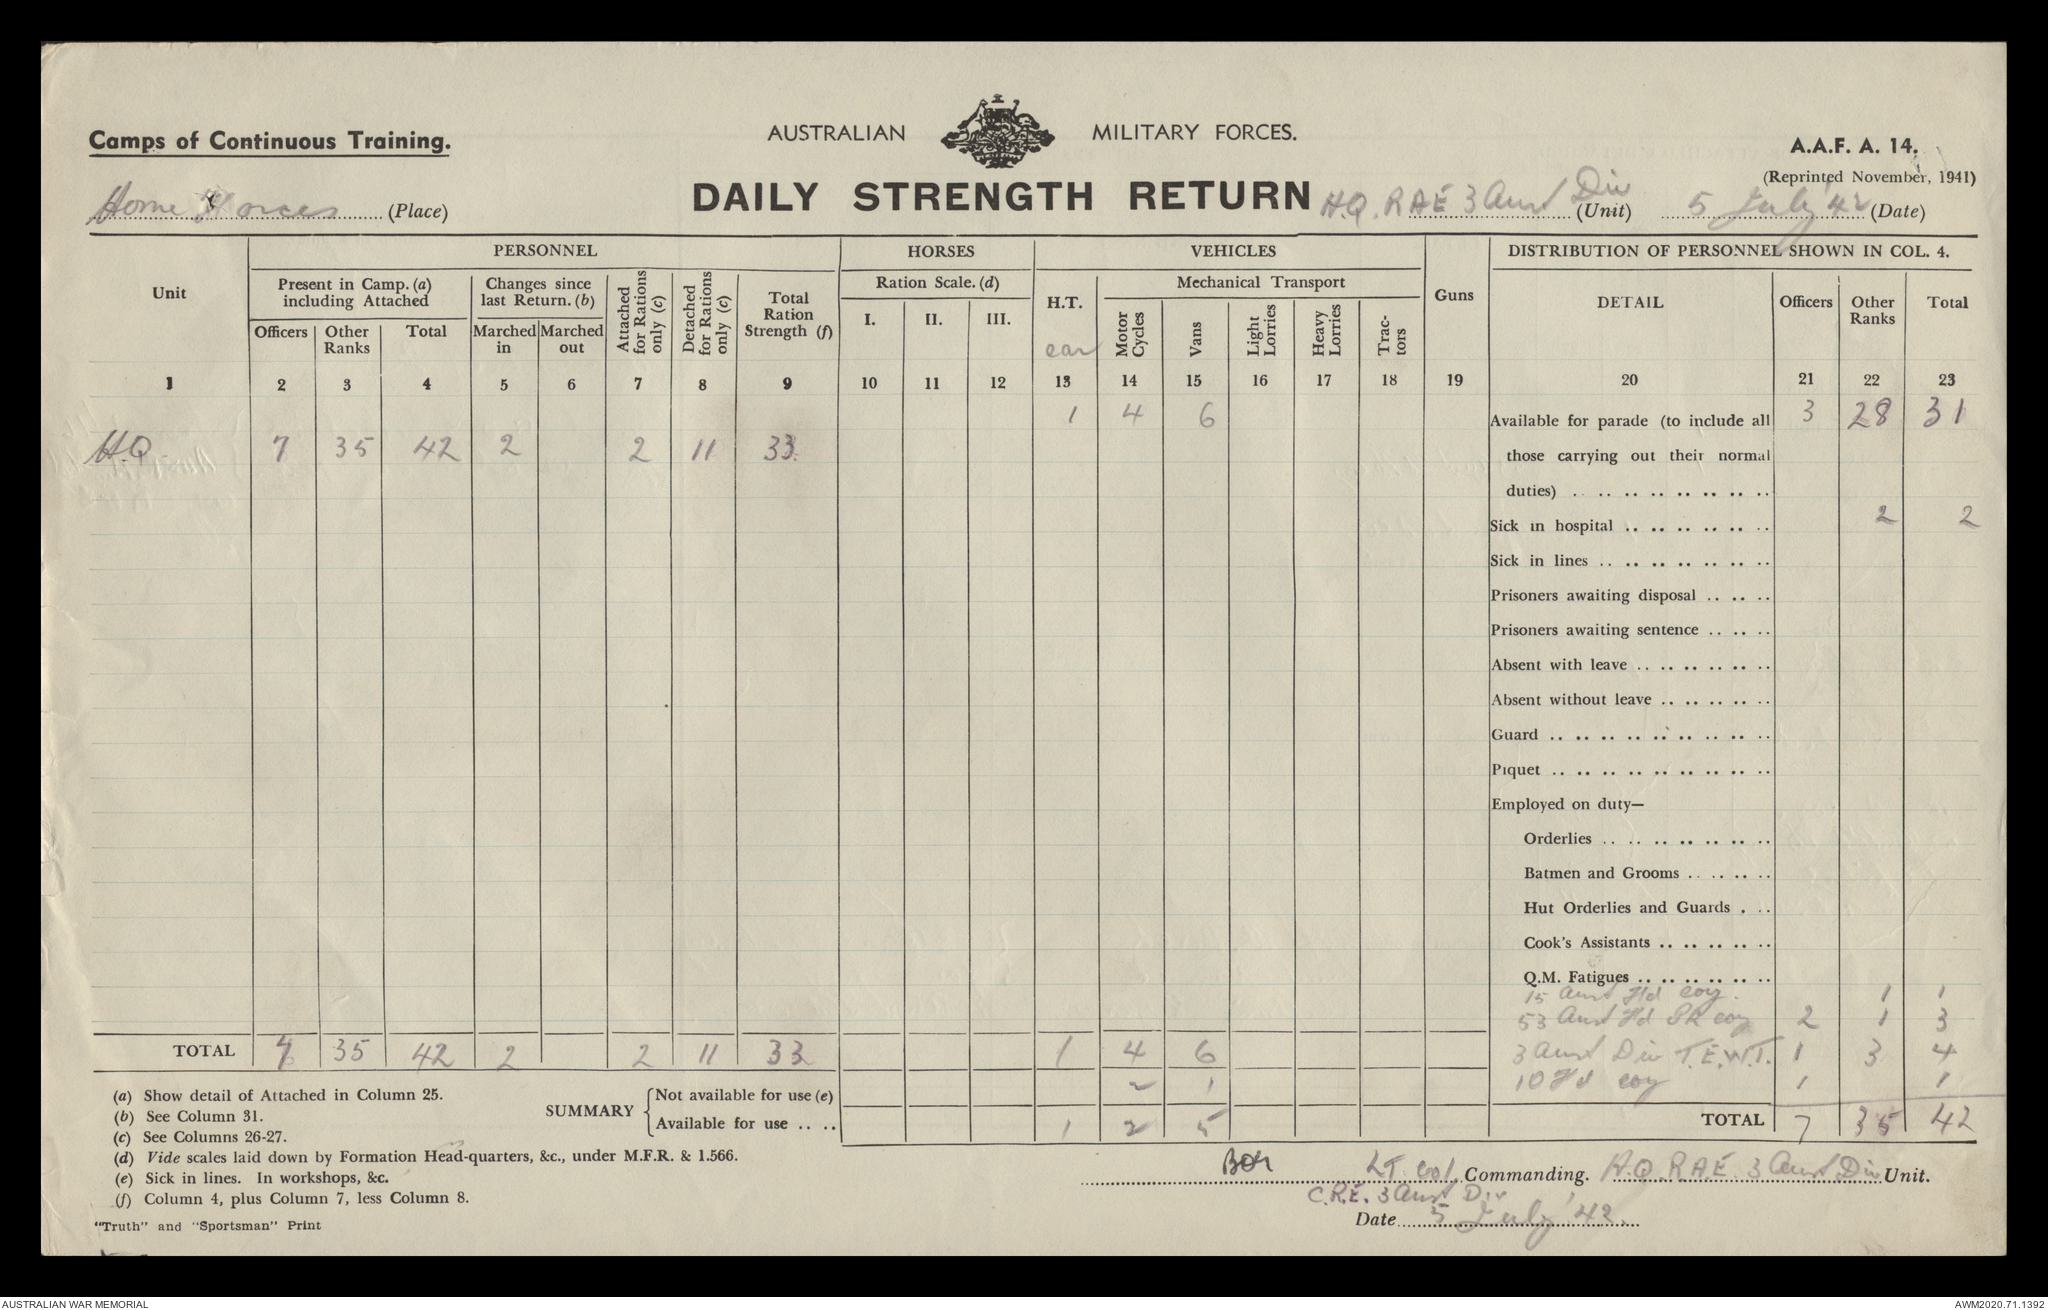 Camps of Continuous Training.
AUSTRALIAN MILITARY FORCES.
A.A.F. A. 14.
(Reprinted November, 1941)
Home Forces (Place)
DAILY STRENGTH RETURN
H.Q. RAE 3 Aust Div (Unit) 5 July '42 (Date)
PERSONNEL HORSES VEHICLES DISTRIBUTION OF PERSONNEL SHOWN IN COL. 4.
Unit
Present in Camp. (a) including Attached
Changes since last Return. (b)
Attached for Rations only (c)
Detached for Rations only (c)
Total Ration Strength (f)
Ration Scale. (d)
H.T.
car
Mechanical Transport
Guns
DETAIL Officers Other Ranks Total
Officers Other Ranks Total Marched in Marched out
I. II. III.
Motor Cycles Vans Light Lorries Heavy Lorries Tractors
1 2 3 4 5 6 7 8 9 10 11 12 13 14 15 16 17 18 19 20 21 22 23
1 4 6
Available for parade (to include all 3 28 31
H.Q. 7 35 42 2 2 11 33
those carrying out their normal
duties) .. .. .. .. .. .. .. ..
Sick in hospital .. .. .. .. .. .. 2 2
Sick in lines .. .. .. .. .. .. ..
Prisoners awaiting disposal .. .. ..
Prisoners awaiting sentence .. .. ..
Absent with leave .. .. .. .. .. ..
Absent without leave .. .. .. .. ..
Guard .. .. .. .. .. .. .. .. ..
Piquet .. .. .. .. .. .. .. .. ..
Employed on duty—
Orderlies .. .. .. .. .. .. ..
Batmen and Grooms .. .. .. ..
Hut Orderlies and Guards . ..
Cook's Assistants .. .. .. .. ..
Q.M. Fatigues .. .. .. .. .. ..
15 Aust Fd coy. 1 1
53 Aust Fd Pk coy 2 1 3
TOTAL 7 35 42 2 2 11 33 1 4 6
3 Aust Div T.E.W.T. 1 3 4
10 Fd coy 1 1
(a) Show detail of Attached in Column 25.
(b) See Column 31.
(c) See Columns 26-27.
(d) Vide scales laid down by Formation Head-quarters, &c., under M.F.R. & 1.566.
(e) Sick in lines. In workshops, &c.
(f) Column 4, plus Column 7, less Column 8.
"Truth" and "Sportsman" Print
SUMMARY
Not available for use (e) 2 1
Available for use .. .. 1 2 5
TOTAL 7 35 42
LT. Col. Commanding. H.Q. R.A.E. 3 Aust Div Unit.
C.R.E. 3 Aust Div
Date 5 July '42.
AUSTRALIAN WAR MEMORIAL
AWM2020.71.1392